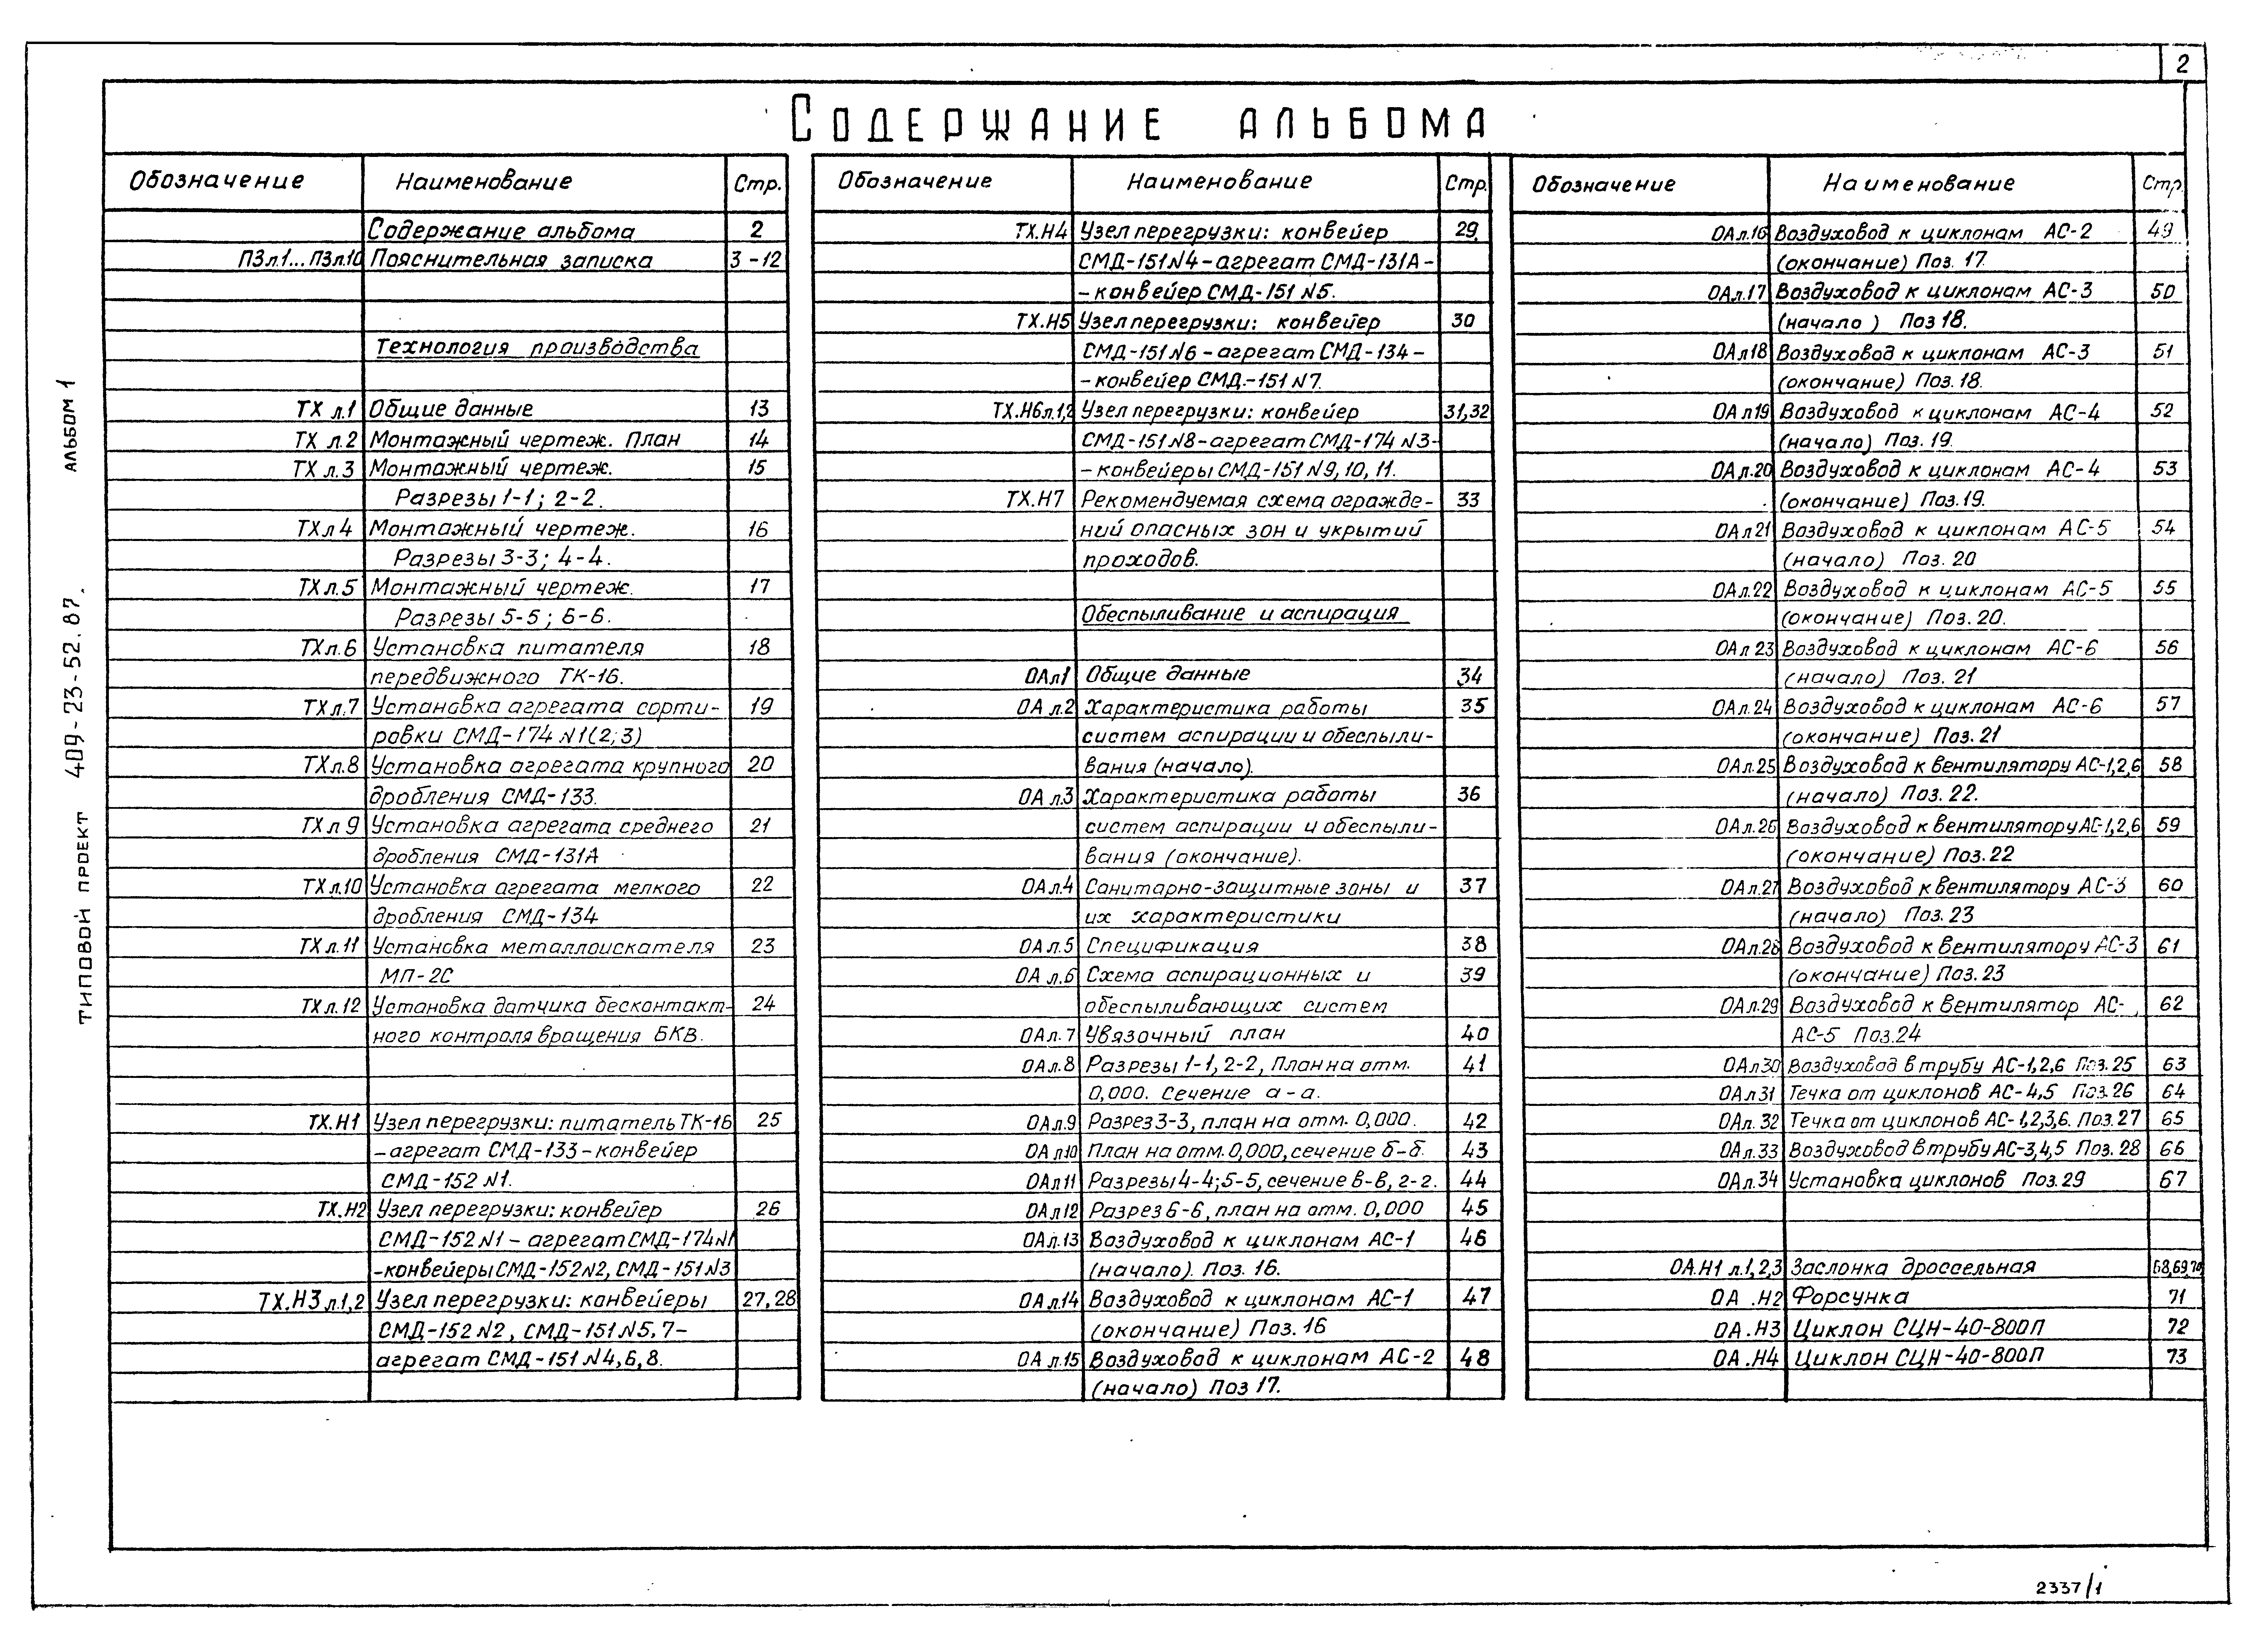 2
СОДЕРЖАНИЕ АЛЬБОМА
АЛЬБОМ 1
ТИПОВОЙ ПРОЕКТ 409-23-52.87.
Обозначение Наименование Стр.
Содержание альбома 2
ПЗл.1...ПЗл.10 Пояснительная записка 3-12
Технология производства
ТХ л.1 Общие данные 13
ТХ л.2 Монтажный чертеж. План 14
ТХ л.3 Монтажный чертеж. 15
Разрезы 1-1; 2-2.
ТХл4 Монтажный чертеж. 16
Разрезы 3-3; 4-4.
ТХл.5 Монтажный чертеж. 17
Разрезы 5-5; 6-6.
ТХл.6 Установка питателя 18
передвижного ТК-16.
ТХл.7 Установка агрегата сорти- 19
ровки СМД-174 N1(2;3)
ТХл.8 Установка агрегата крупного 20
дробления СМД-133.
ТХл 9 Установка агрегата среднего 21
дробления СМД-131А
ТХл.10 Установка агрегата мелкого 22
дробления СМД-134
ТХ л.11 Установка металлоискателя 23
МП-2С
ТХл.12 Установка датчика бесконтакт- 24
ного контроля вращения БКВ.
ТХ.Н1 Узел перегрузки: питатель ТК-16 25
-агрегат СМД-133-конвейер
СМД-152 N1.
ТХ.Н2 Узел перегрузки: конвейер 26
СМД-152 N1-агрегат СМД-174N1
-конвейеры СМД-152N2, СМД-151N3
ТХ.Н3 л.1,2 Узел перегрузки: конвейеры 27,28
СМД-152 N2, СМД-151 N5,7-
агрегат СМД-151 N4,6,8.
Обозначение Наименование Стр.
ТХ.Н4 Узел перегрузки: конвейер 29
СМД-151N4-агрегат СМД-131А-
-конвейер СМД-151 N5.
ТХ.Н5 Узел перегрузки: конвейер 30
СМД-151N6-агрегат СМД-134-
-конвейер СМД.-151 N7.
ТХ.Н6л.1,2 Узел перегрузки: конвейер 31,32
СМД-151N8-агрегат СМД-174 N3-
-конвейеры СМД-151 N9,10,11.
ТХ.Н7 Рекомендуемая схема огражде- 33
ний опасных зон и укрытий
проходов.
Обеспыливание и аспирация
ОАл1 Общие данные 34
ОА л.2 Характеристика работы 35
систем аспирации и обеспыли-
вания (начало).
ОА л.3 Характеристика работы 36
систем аспирации и обеспыли-
вания (окончание).
ОАл.4 Санитарно-защитные зоны и 37
их характеристики
ОА л.5 Спецификация 38
ОА л.6 Схема аспирационных и 39
обеспыливающих систем
ОАл.7 Увязочный план 40
ОАл.8 Разрезы 1-1, 2-2, План на отм. 41
0,000. Сечение а-а.
ОАл.9 Разрез 3-3, план на отм. 0,000. 42
ОА л10 План на отм.0,000, сечение б-б. 43
ОАл11 Разрезы 4-4; 5-5, сечение в-в, г-г. 44
ОАл12 Разрез 6-6, план на отм. 0,000 45
ОАл.13 Воздуховод к циклонам АС-1 46
(начало). Поз. 16.
ОАл.14 Воздуховод к циклонам АС-1 47
(окончание) Поз. 16
ОА л.15 Воздуховод к циклонам АС-2 48
(начало) Поз 17.
Обозначение Наименование Стр.
ОАл.16 Воздуховод к циклонам АС-2 49
(окончание) Поз. 17.
ОАл.17 Воздуховод к циклонам АС-3 50
(начало) Поз 18.
ОАл18 Воздуховод к циклонам АС-3 51
(окончание) Поз. 18.
ОА л19 Воздуховод к циклонам АС-4 52
(начало) Поз. 19.
ОАл.20 Воздуховод к циклонам АС-4 53
(окончание) Поз.19.
ОАл21 Воздуховод к циклонам АС-5 54
(начало) Поз. 20
ОАл.22 Воздуховод к циклонам АС-5 55
(окончание) Поз.20.
ОАл 23 Воздуховод к циклонам АС-6 56
(начало) Поз. 21
ОАл.24 Воздуховод к циклонам АС-6 57
(окончание) Поз.21
ОАл.25 Воздуховод к вентилятору АС-1,2,6 58
(начало) Поз. 22.
ОАл.26 Воздуховод к вентилятору АС-1,2,6 59
(окончание) Поз.22
ОАл.27 Воздуховод к вентилятору АС-3 60
(начало) Поз.23
ОАл.28 Воздуховод к вентилятору АС-3 61
(окончание) Поз.23
ОАл.29 Воздуховод к вентилятор АС- 62
АС-5 Поз.24
ОАл30 Воздуховод в трубу АС-1,2,6 Поз.25 63
ОАл31 Течка от циклонов АС-4,5 Поз.26 64
ОАл.32 Течка от циклонов АС-1,2,3,6. Поз.27 65
ОАл.33 Воздуховод в трубу АС-3,4,5 Поз.28 66
ОАл.34 Установка циклонов Поз.29 67
ОА.Н1 л.1,2,3 Заслонка дроссельная 68,69,70
ОА .Н2 Форсунка 71
ОА.Н3 Циклон СЦН-40-800П 72
ОА .Н4 Циклон СЦН-40-800П 73
2337/1